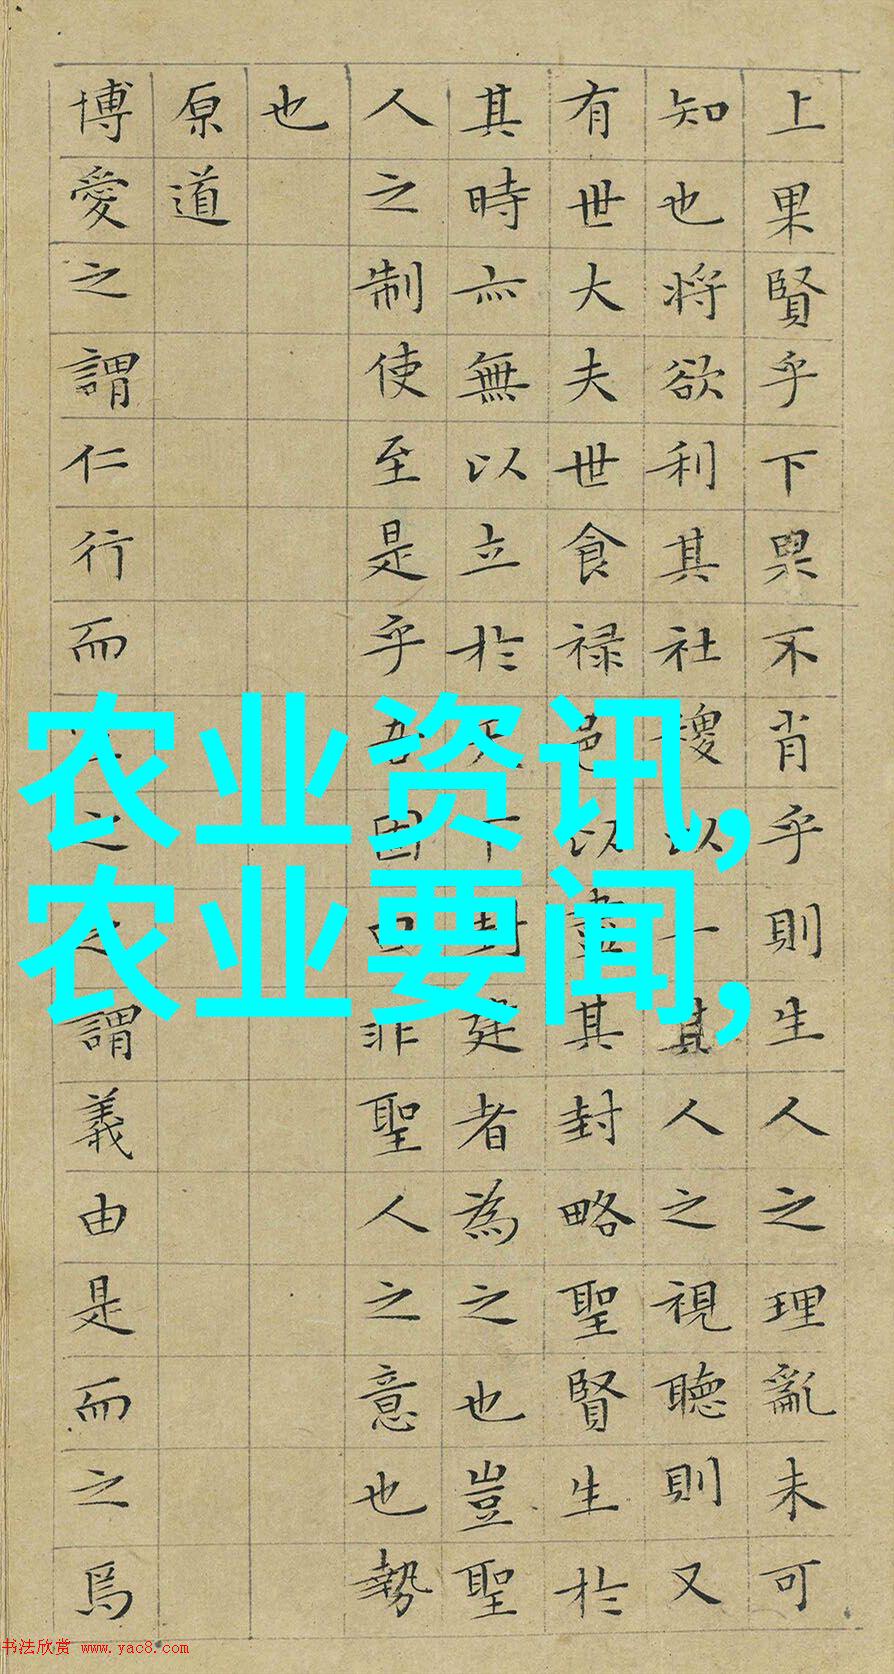 上果賢乎下果不肖乎則生人之理亂未可
知也将欲利其社稷以一其人之視聽則又
有世大夫世食禄邑以盡其封略聖賢生於
其時亦無以立於天下封建者為之也豈聖
人之制使至是乎吾固曰非聖人之意也勢
也
原道
博愛之謂仁行而之之謂義由是而之焉
农业资讯,
农业要闻,
书法欣赏 www.yac8.com